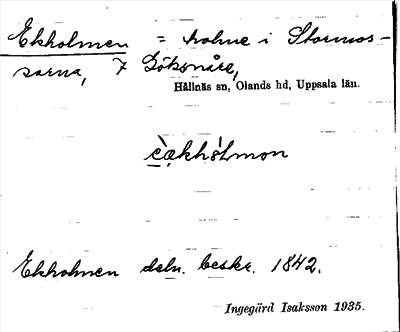 Ekholmen = holme i Stormos-
sarna, 7 Göksnåre,
Hållnäs sn, Olands hd, Uppsala län.
Ekholmen deln. beskr. 1842.
Ingegärd Isaksson 1935.